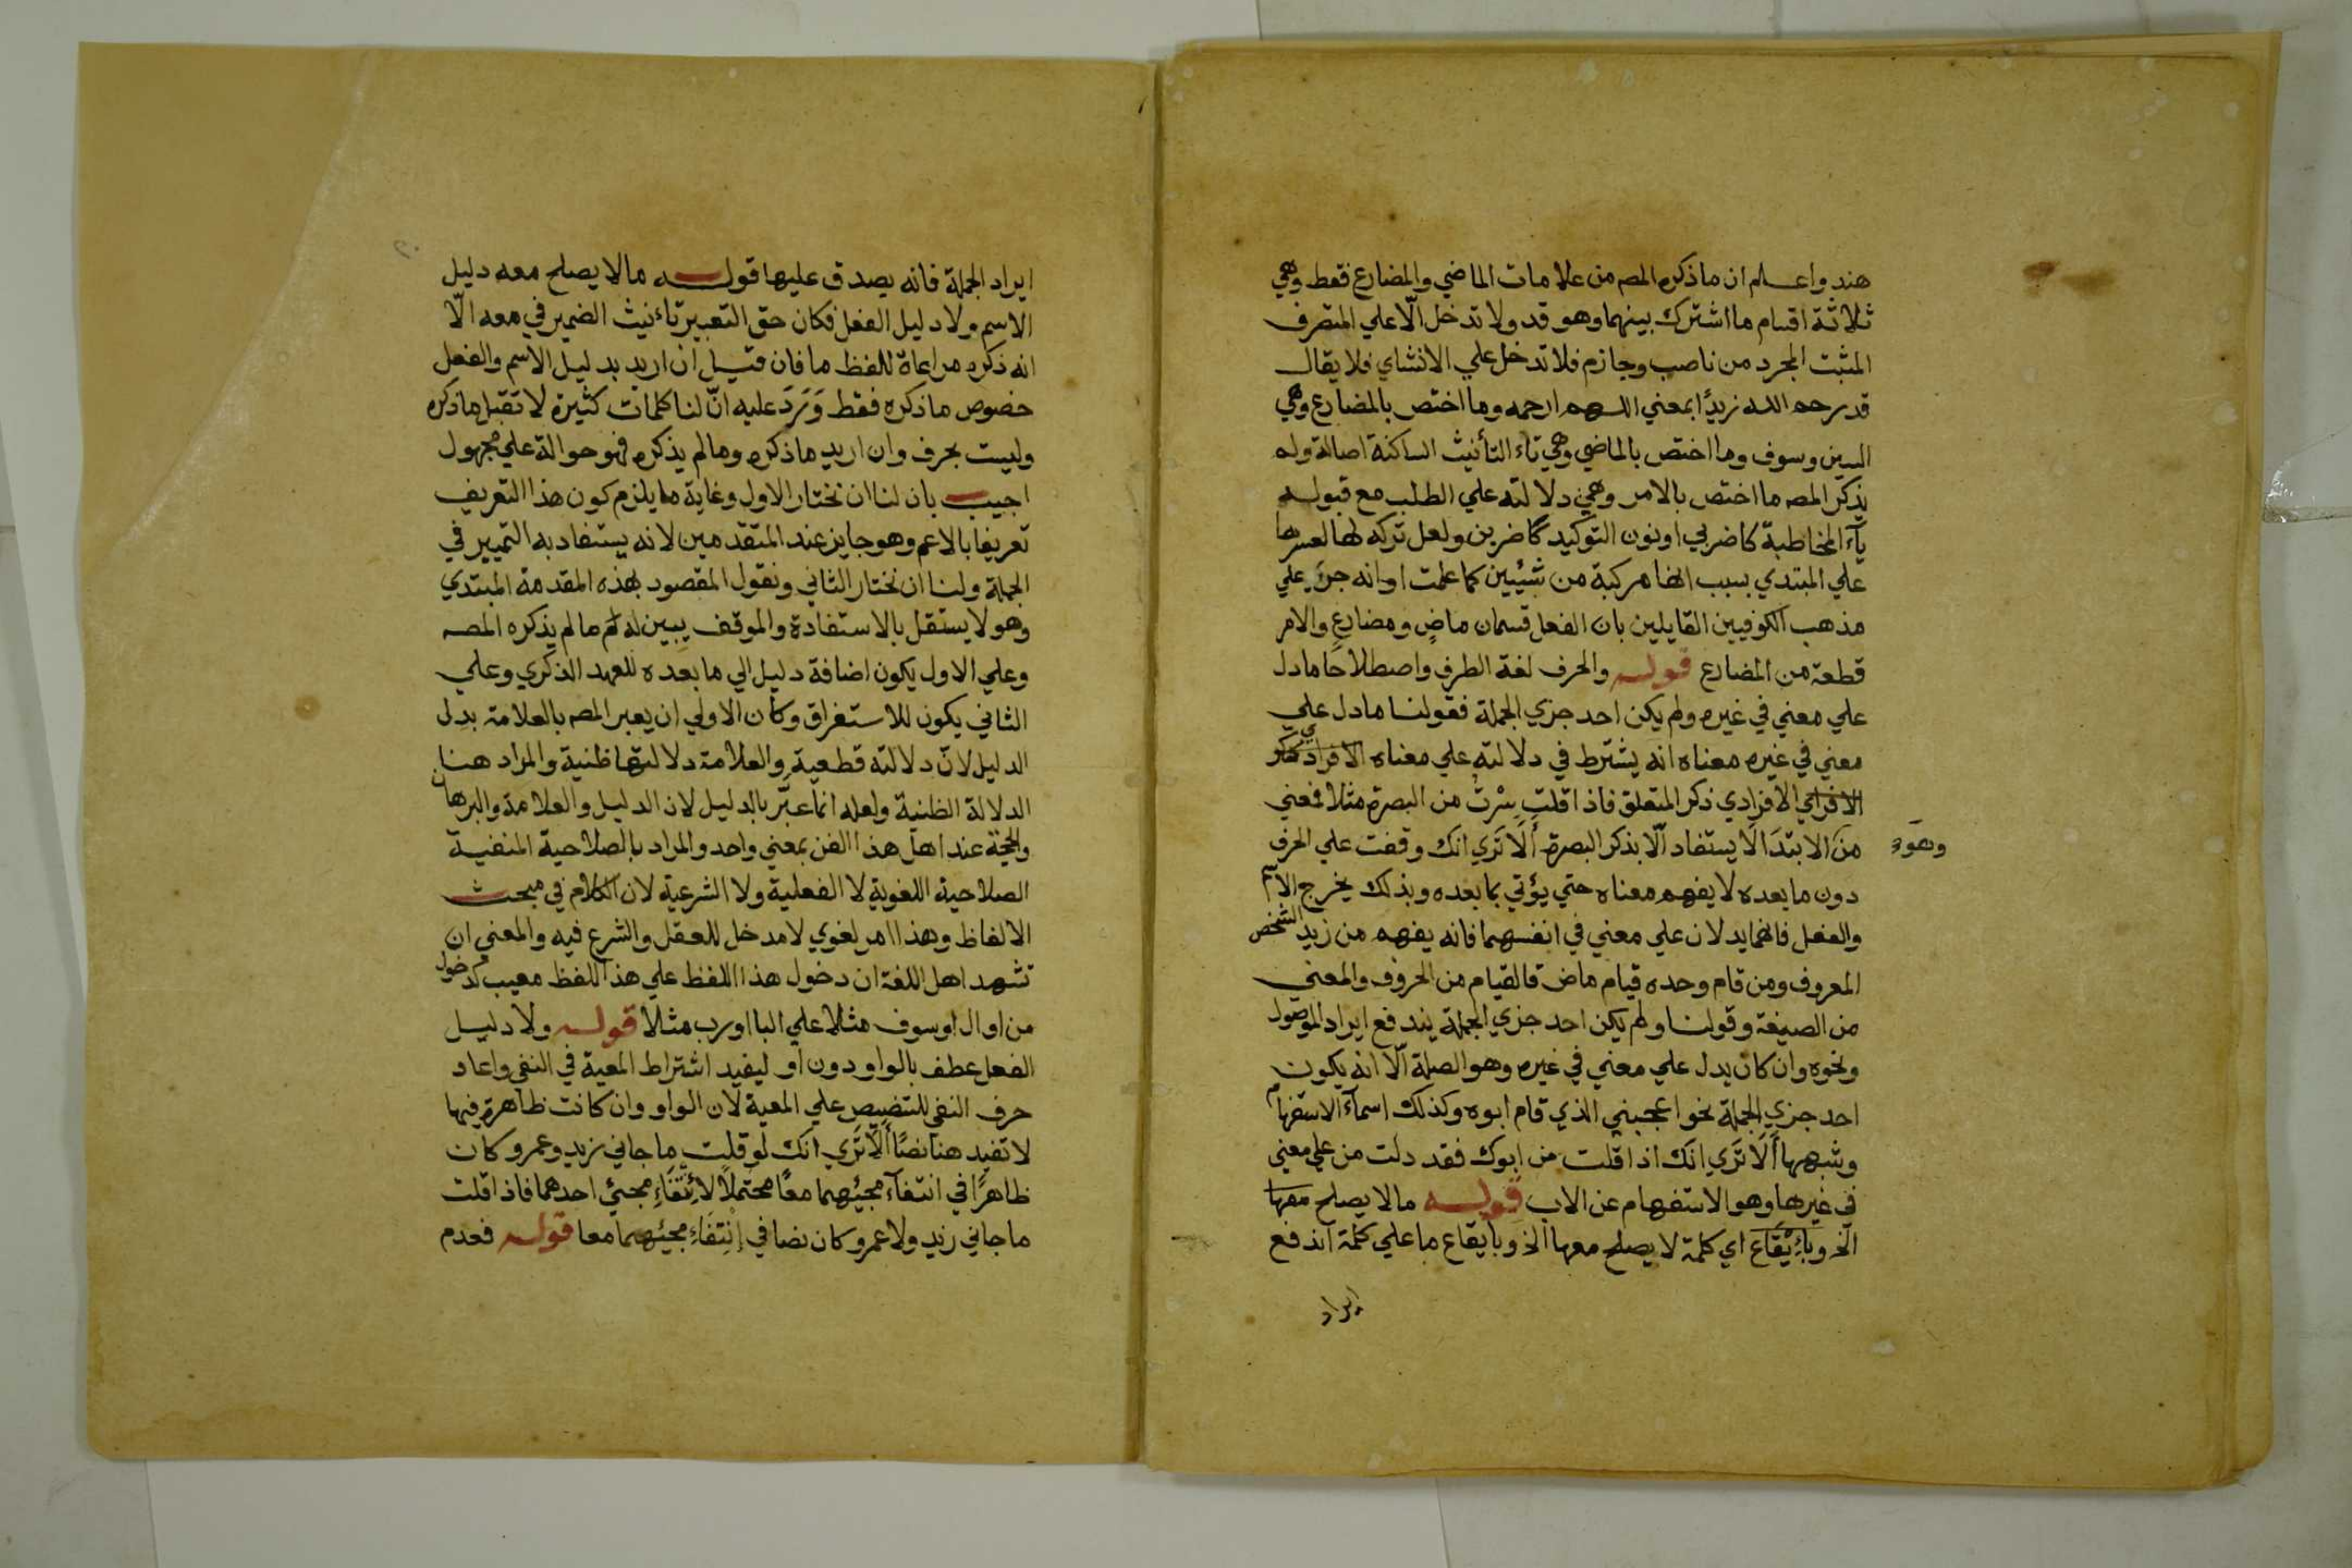 هند واعلم ان ما ذكره المصه من علامات الماضي والمضارع فقط وهي
ثلاثة اقسام ما اشترك بينهما وهو قد ولا تدخل الّا علي المتصرف
المثبت المجرد من ناصب وجازم فلا تدخل علي الانشاي فلا يقال
قد رحم الله زيدًا بمعني اللهم ارحمه وما اختص بالمضارع وهي
السين وسوف وما اختص بالماضي وهي تاء التأنيث الساكنة اصالة ولم
يذكر المصه ما اختص بالامر وهي دلالته علي الطلب مع قبوله
يآء المخاطبة كاضربي او نون التوكيد كاضربن ولعل تركه لها لعسرها
علي المبتدي بسبب انها مركبة من شيئين كما علمت او انه جري علي
مذهب الكوفيين القايلين بان الفعل قسمان ماضٍ ومضارعٍ والامر
قطعة من المضارع قوله والحرف لغة الطرف واصطلاحًا ما دل
علي معني في غيره ولم يكن احد جزي الجملة فقولنا ما دل علي
معني في غيره معناه انه يشترط في دلالته علي معناه الافرادي
الافرادي ذكر المتعلق فاذا قلت سِرْتُ من البصرة مثلا فمعني
من الابتدَا لَا يستفاد الّا بذكر البصرة أَلَا تَرَي انك وقفت علي الحرف
وهو
دون ما بعده لا يفهم معناه حتي يؤتي بما بعده وبذلك يخرج الاسم
والفعل فانهما يدلان علي معني في انفسهما فانه يفهم من زيد الشخص
المعروف ومن قام وحده قيام ماض فالقيام من الحروف والمعني
من الصيغة وقولنا ولم يكن احد جزي الجملة يندفع ايراد الموصول
ونحوه وان كان يدل علي معني في غيره وهو الصلة الّا انه يكون
احد جزي الجملة نحو اعجبني الذي قام ابوه وكذلك اسمآء الاستفهام
وشبهها أَلَا تَرَي انَك اذا قلت من ابوك فقد دلت من علي معني
في غيرها وهو الاستفهام عن الاب قوله ما لا يصلح معها
الخ وبِايقَاع اي كلمة لا يصلح معها الخ وبايقاع ما علي كلمة اندفع
ايراد
ايراد الجملة فانه يصدق عليها قوله ما لا يصلح معه دليل
الاسم ولا دليل الفعل فكان حق التعبير تاءنيث الضمير في معه الّا
انه ذكره مراعاة للفظ ما فان قيل ان اريد بدليل الاسم والفعل
خصوص ما ذكره فقط وَرَدَ عليه انّ لنا كلمات كثيرة لا تقبل ما ذكره
وليست بحرف وان اريد ما ذكره وما لم يذكره فهو حوالة علي مجهول
اجيب بان لنا ان نختار الاول وغاية ما يلزم كون هذا التعريف
تعريفا بالاعم وهو جايز عند المتقدمين لانه يستفاد به التمييز في
الجملة ولنا ان نختار الثاني ونقول المقصود بهذه المقدمة المبتدي
وهو لا يستقل بالاستفادة والموقف يبين له ما لم يذكره المصه
وعلي الاول يكون اضافة دليل الي ما بعده للعهد الذكري وعلي
الثاني يكون للاستغراق وكان الاولي ان يعبر المصه بالعلامة بدل
الدليل لانّ دلالته قطعية والعلامة دلالتها ظنية والمراد هنا
الدلالة الظنية ولعله انما عبّر بالدليل لان الدليل والعلامة والبرهان
والحجة عند اهل هذا الفن بمعني واحد والمراد بالصلاحية المنفية
الصلاحية اللغوية لا الفعلية ولا الشرعية لان الكلام في مبحث
الالفاظ وهذا امر لغوي لا مدخل للعقل والشرع فيه والمعني ان
تشهد اهل اللغة ان دخول هذا اللفظ علي هذا اللفظ معيب كدخول
من او ال او سوف مثلا علي البا او رب مثلا قوله ولا دليل
الفعل عطف بالواو دون او ليفيد اشتراط المعية في النفي واعاد
حرف النفي للتنصيص علي المعية لان الواو وان كانت ظاهرة فيها
لا تفيد هنا نصًا أَلَا تَرَي انك لو قلت ما جاني زيد وعمرو كان
ظاهرًا في انتفآء مجيئهما معًا محتملًا لِانْتِفَاءِ مجئ احدهما فاذا قلت
ما جاني زيد ولا عمرو كان نصا في اِنْتِفَاءِ مجيئهما معا قوله فعدم